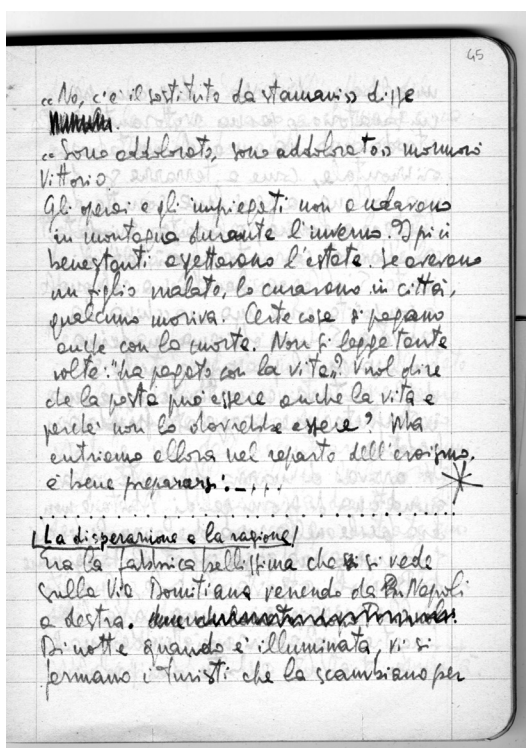 45
"No, c'è il sostituto da stamani» disse
"Sono addolorato, sono addolorato» mormorò
Vittorio.
Gli operai e gli impiegati non andavano
in montagna durante l'inverno. I più
benestanti aspettavano l'estate. Se avevano
un figlio malato, lo curavano in città,
qualcuno moriva. Certe cose si pagano
anche con la morte. Non si legge tante
volte: "ha pagato con la vita»? Vuol dire
che la posta può essere anche la vita e
perché non lo dovrebbe essere? Ma
entriamo allora nel reparto dell'eroismo,
è bene prepararsi.
La disperazione e la ragione
Era la fabbrica bellissima che si vede
sulla Via Domitiana venendo da Napoli
a destra.
Di notte quando è illuminata, vi si
fermano i turisti che la scambiano per